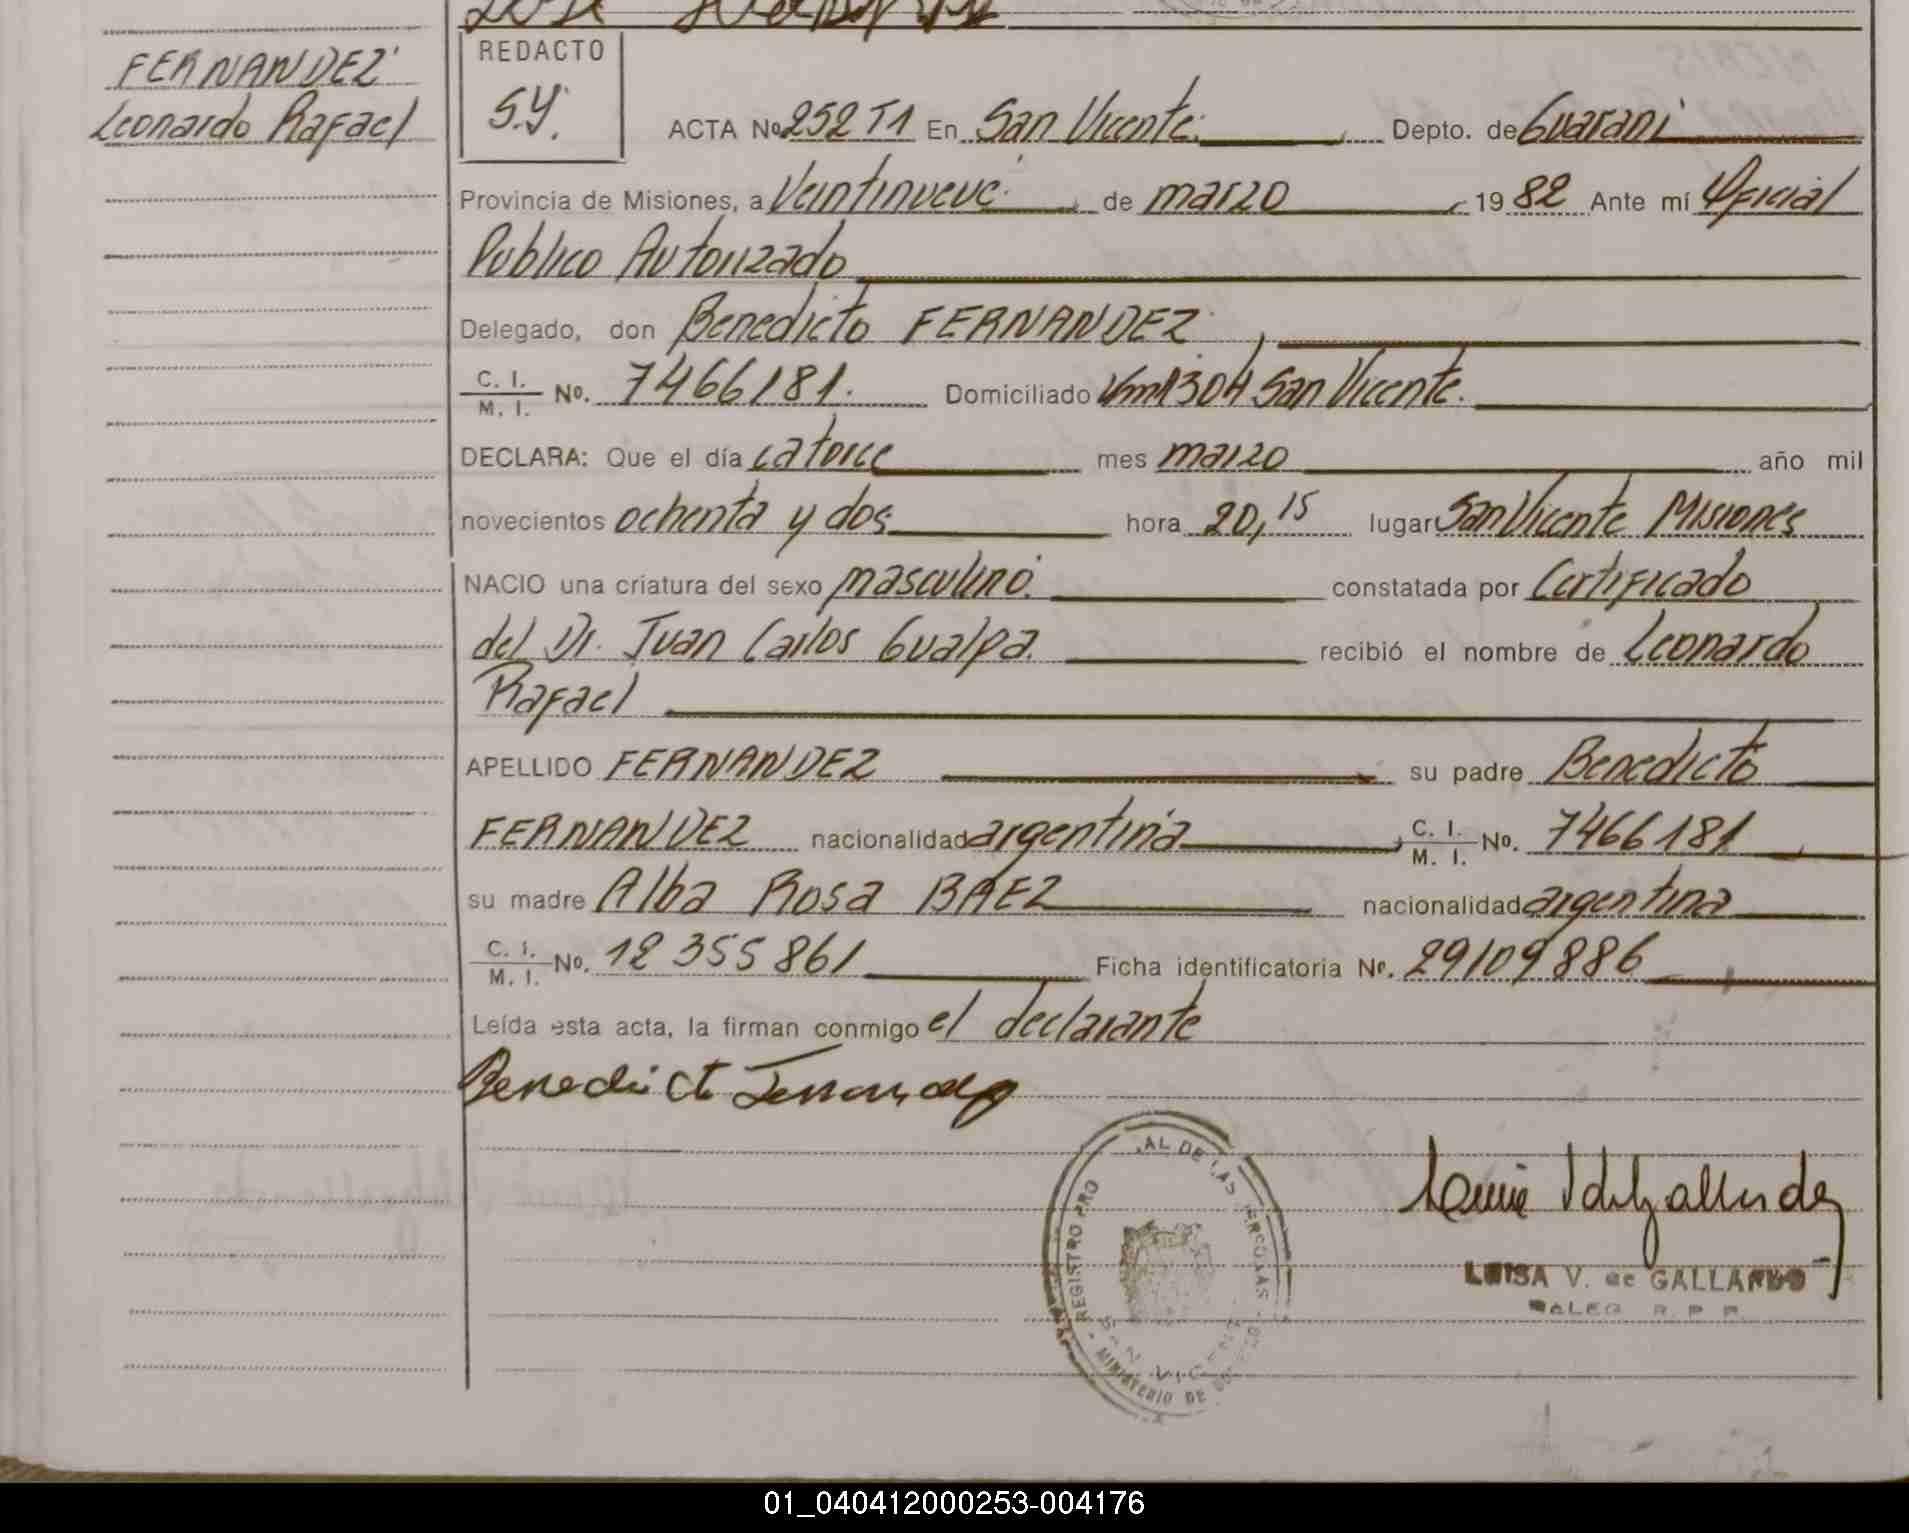 FERNANDEZ
Leonardo Rafael
REDACTO
S.Y.
ACTA No 252 T1 En San Vicente. Depto. de Guarani
Provincia de Misiones, a Veintinueve de marzo 1982 Ante mí Oficial
Publico Autorizado
Delegado, don Benedicto FERNANDEZ,
C. I. / M. I. No. 7466181. Domiciliado Km1304 San Vicente.
DECLARA: Que el día catorce mes marzo año mil
novecientos ochenta y dos hora 20,15 lugar San Vicente Misiones
NACIO una criatura del sexo masculino. constatada por Certificado
del Dr. Juan Carlos Gualpa. recibió el nombre de Leonardo
Rafael
APELLIDO FERNANDEZ su padre Benedicto
FERNANDEZ nacionalidad argentina C. I. / M. I. No. 7466181
su madre Alba Rosa BAEZ nacionalidad argentina
C. I. / M. I. No. 12 355 861 Ficha identificatoria No. 29109886
Leída esta acta, la firman conmigo el declarante
Benedicto Fernandez
REGISTRO PRO AL DE LAS PERSONAS
SAN VICENTE
MINISTERIO DE
LUISA V. de GALLARDO
DALEG R. P. P.
01_040412000253-004176